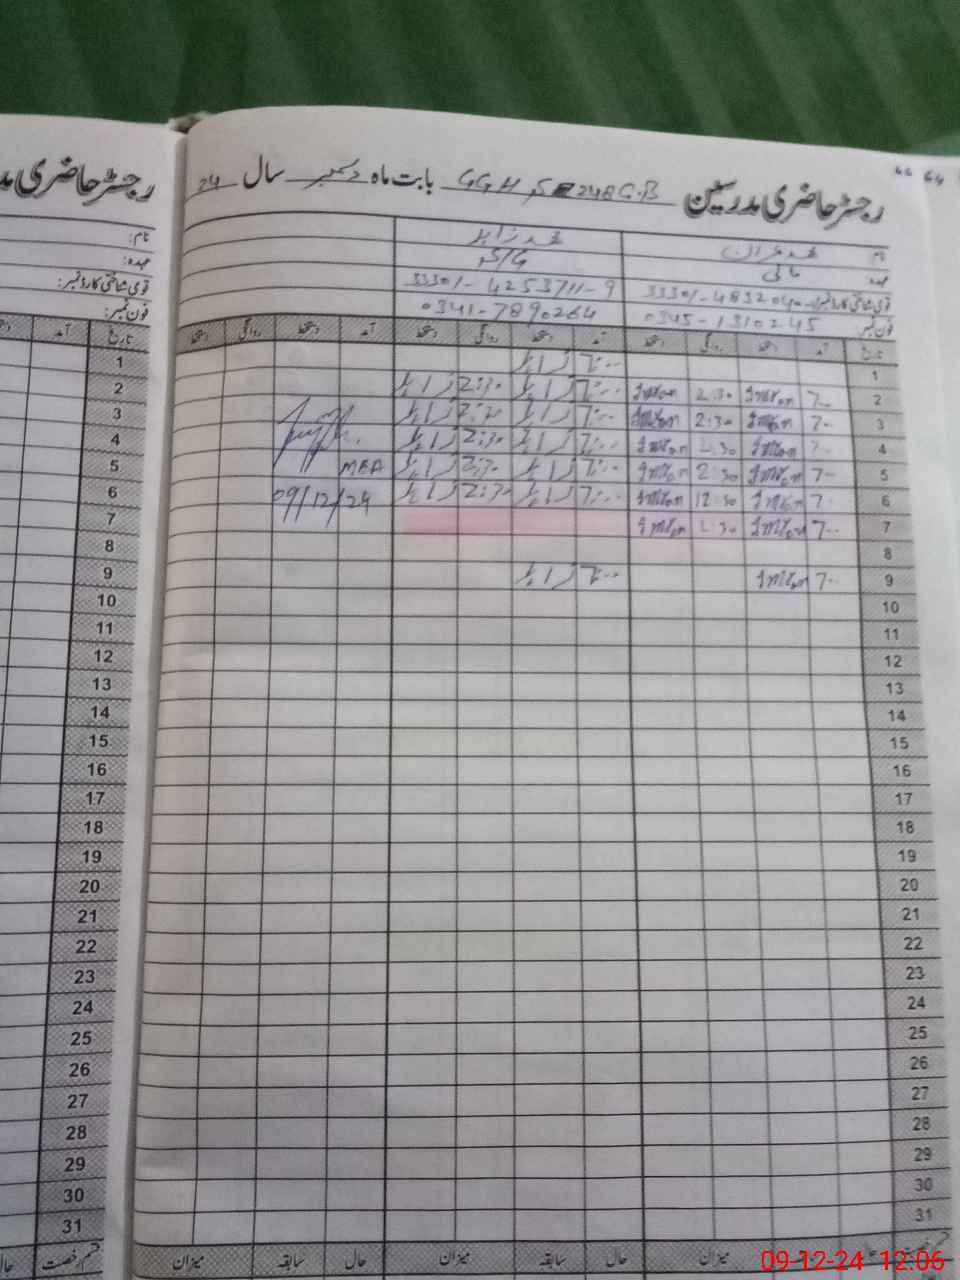 رجسٹر حاضری مدرسین GGHS 248 G.B بابت ماہ دسمبر سال 24
رجسٹر حاضری
نام: محمد عمران محمد زاہد
عہدہ: مالی
قومی شناختی کارڈ نمبر: 33301-4253711-9
فون نمبر: 0345-1310245 0341-7890264
تاریخ آمد دستخط روانگی دستخط آمد دستخط روانگی دستخط آمد دستخط روانگی دستخط
1 7:00 زاہد
2 7:00 Imran 2:30 Imran 7:00 زاہد 2:30 زاہد
3 7:00 Imran 2:30 Imran 7:00 زاہد 2:30 زاہد
4 7:00 Imran 2:30 Imran 7:00 زاہد 2:30 زاہد
5 7:00 Imran 2:30 Imran 7:00 زاہد 2:30 زاہد MEA
6 7:00 Imran 12:30 Imran 7:00 زاہد 2:30 زاہد 09/12/24
7 7:00 Imran 2:30 Imran
8
9 7:00 Imran 7:00 زاہد
10
11
12
13
14
15
16
17
18
19
20
21
22
23
24
25
26
27
28
29
30
31
قسم رخصت حال سابقہ میزان حال سابقہ میزان حال سابقہ میزان
نام:
عہدہ:
قومی شناختی کارڈ نمبر:
فون نمبر:
تاریخ آمد
1
2
3
4
5
6
7
8
9
10
11
12
13
14
15
16
17
18
19
20
21
22
23
24
25
26
27
28
29
30
31
قسم رخصت حال
09-12-24 12:06